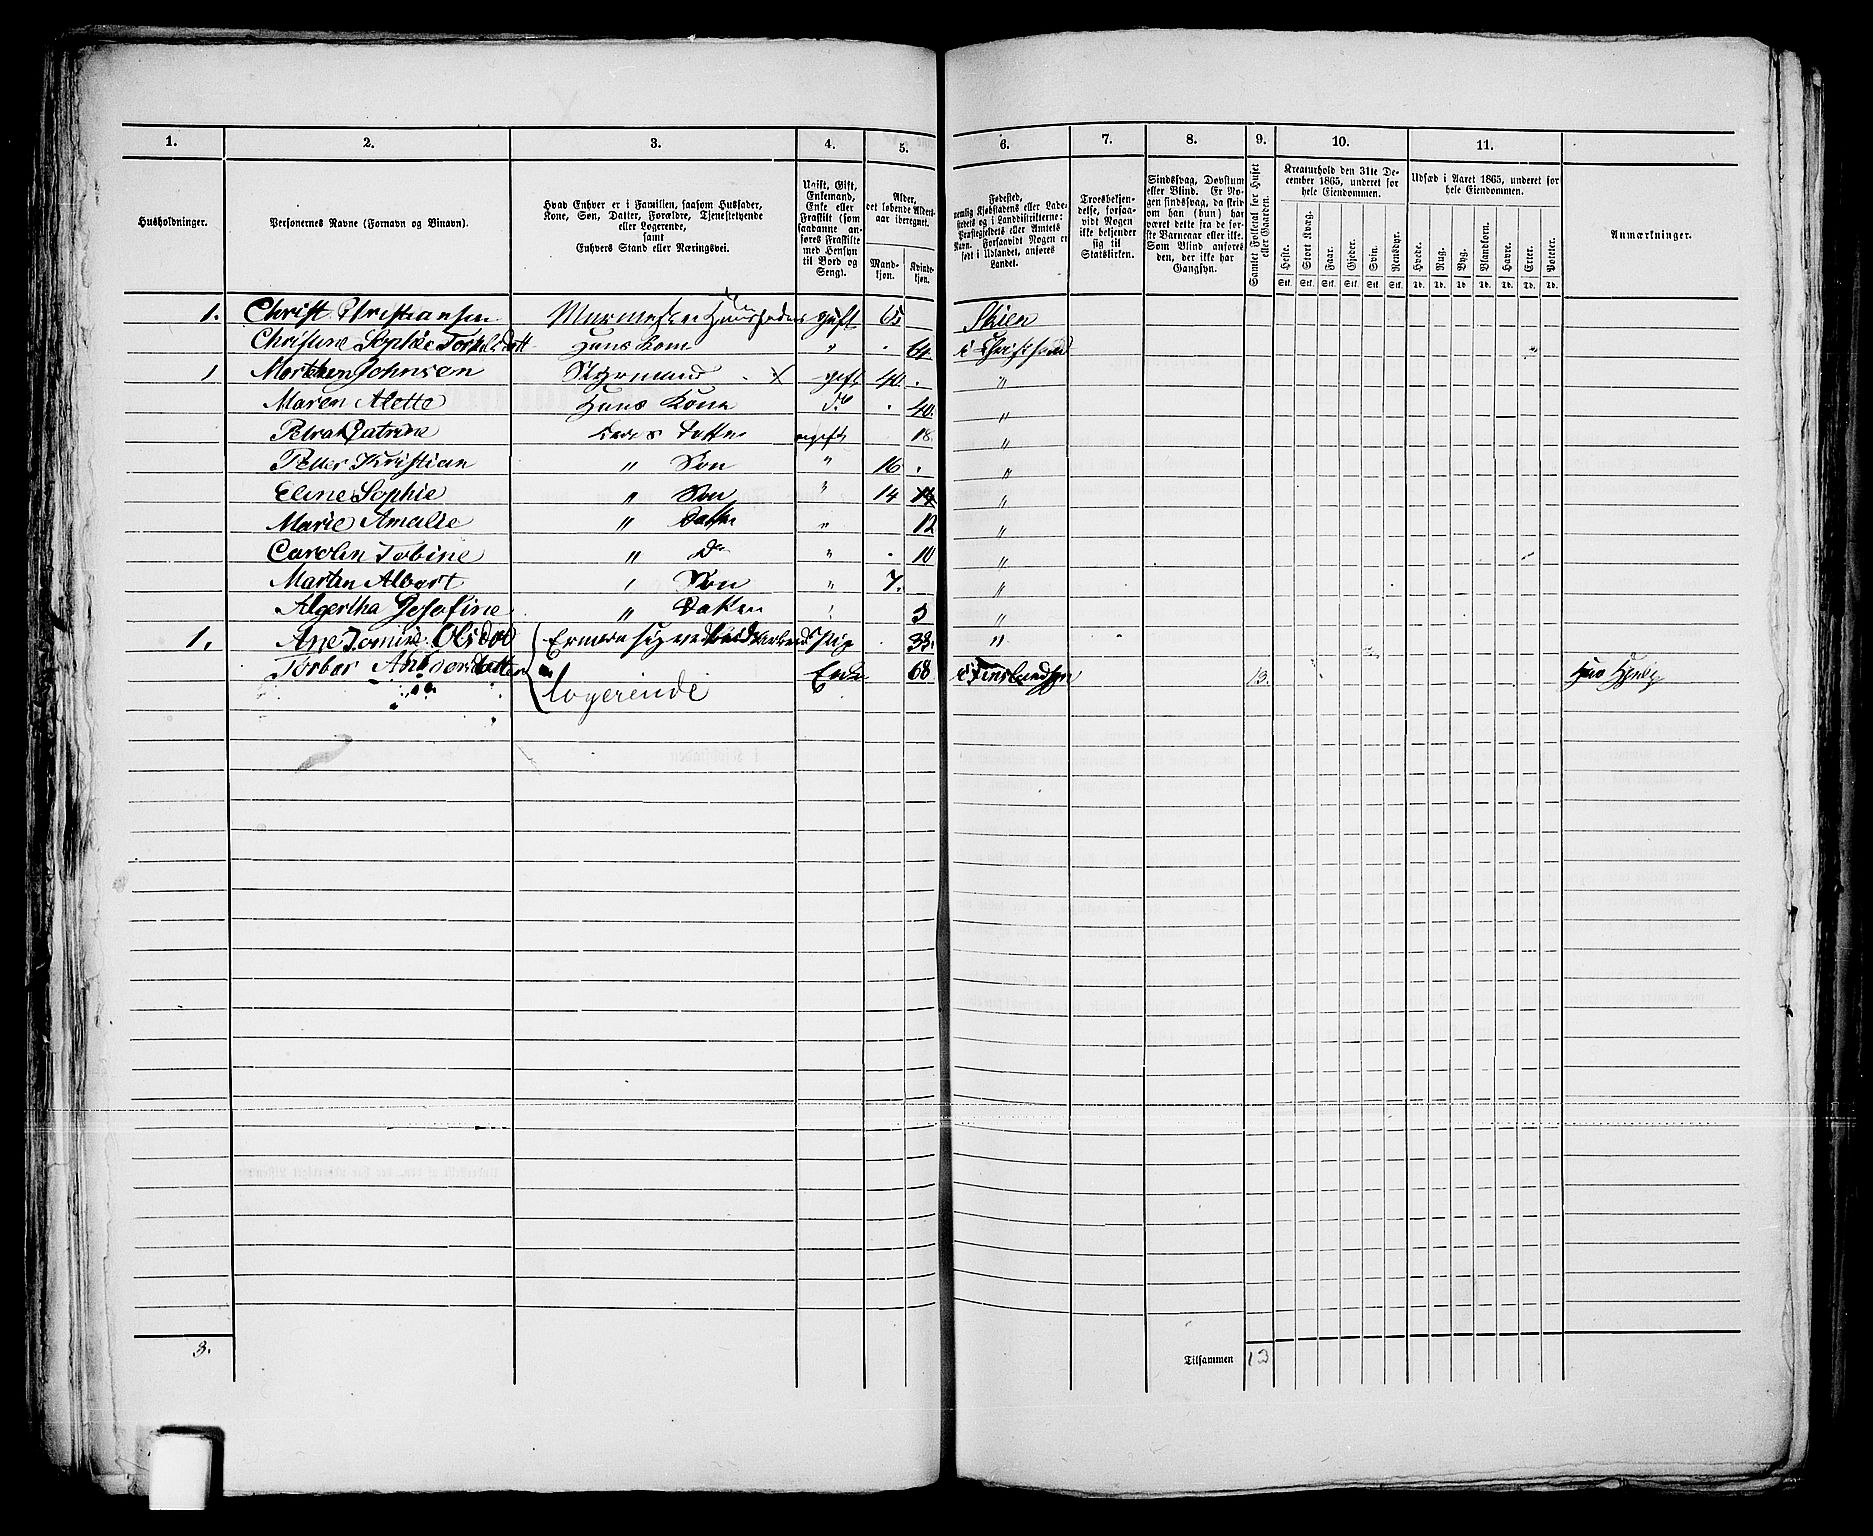 1. 2. 3. 4. 5. 6. 7. 8. 9. 10. 11.
Husholdninger.
Personernes Navne (Fornavn og Binavn).
Hvad Enhver er i Familien, saasom Husfader,
Kone, Søn, Datter, Forældre, Tjenestetyende
eller Logerende,
samt
Enhvers Stand eller Næringsvei.
Ugift, Gift,
Enkemand,
Enke eller
Fraskilt (som
saadanne an-
føres Fraskilte
med Hensyn
til Bord og
Seng).
Alder,
det løbende Alders-
aar iberegnet.
Mand-
kjøn.
Kvinde-
kjøn.
Fødested,
nemlig Kjøbstadens eller Lade-
stedets og i Landdistrikterne:
Præstegjeldets eller Amtets
Navn. Forsaavidt Nogen er
født i Udlandet, anføres
Landet.
Troesbekjen-
delse, forsaa-
vidt Nogen
ikke bekjender
sig til
Statskirken.
Sindssvag, Døvstum
eller Blind. Er No-
gen sindssvag, da skriv
om han (hun) har
været dette fra de før-
ste Barneaar eller ikke.
Som Blind anføres
den, der ikke har
Gangsyn.
Samlet Folketal for Huset
eller Gaarden.
Kreaturhold den 31te De-
cember 1865, underet for
hele Eiendommen.
Heste. Stort Kvæg. Faar. Gjeder. Svin. Rensdyr.
Stk. Stk. Stk. Stk. Stk. Stk.
Udsæd i Aaret 1865, underet for
hele Eiendommen.
Hvede. Rug. Byg. Blandkorn. Havre. Erter. Poteter.
Td. Td. Td. Td. Td. Td. Td.
Anmærkninger.
1. Christ Christiansen gift 65 Skien
Christine Sophie Torkelsdatt Huns Kone " . 64 i Christsand
1 Morthen Johnsen Styrmand X gift 40 . "
Maren Alette Huns Kone do . 40. "
Petra Catrine Datter ugift 18 "
Petter Kristian " Søn " 16 . "
Eline Sophie " Søn " 14 14 "
Marie Amalie " Datter " 12 "
Carolen Tobine " Do " . 10 "
Marten Albert " Søn " 7. "
Algertha Josefine " Datter " 5 "
1. Ane Olsdat . 33. "
Andersdatter Enke 68 13.
logerende
3. Tilsammen 13